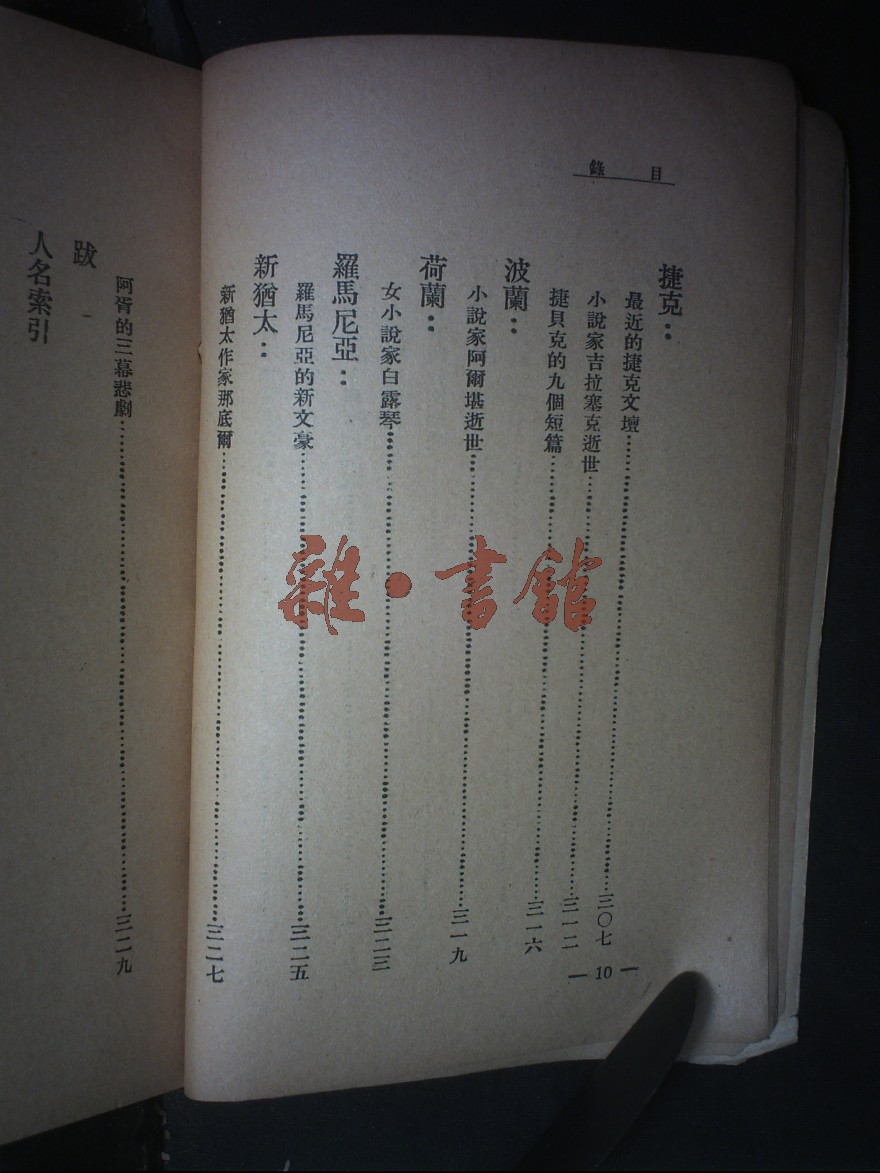 目錄
捷克：
最近的捷克文壇……三〇七
小說家吉拉塞克逝世……三一二
捷貝克的九個短篇……三一六
波蘭：
小說家阿爾堪逝世……三一九
荷蘭：
女小說家白露琴……三二三
羅馬尼亞：
羅馬尼亞的新文豪……三二五
新猶太：
新猶太作家那底爾……三二七
— 10 —
阿胥的三幕悲劇……三二九
跋
人名索引
雜·書館